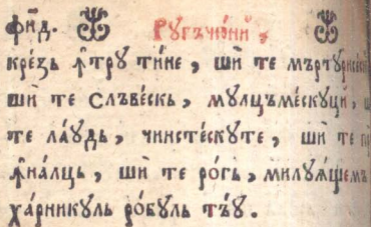 фи҃д. Ругъчю́ний,
кре́зь ꙟ҆трꙋ ти́не, ши́ те мъ́ртꙋрисе́
ши́ те слъве́скь, мꙋлцъме́скꙋци,
те ла́ꙋдь, чинсте́скꙋте, ши́ те
ꙟ҆на́лць, ши́ те ро́гь, милꙋѧ́щем
ха́рникꙋль ро́бꙋль тъ́ꙋ.